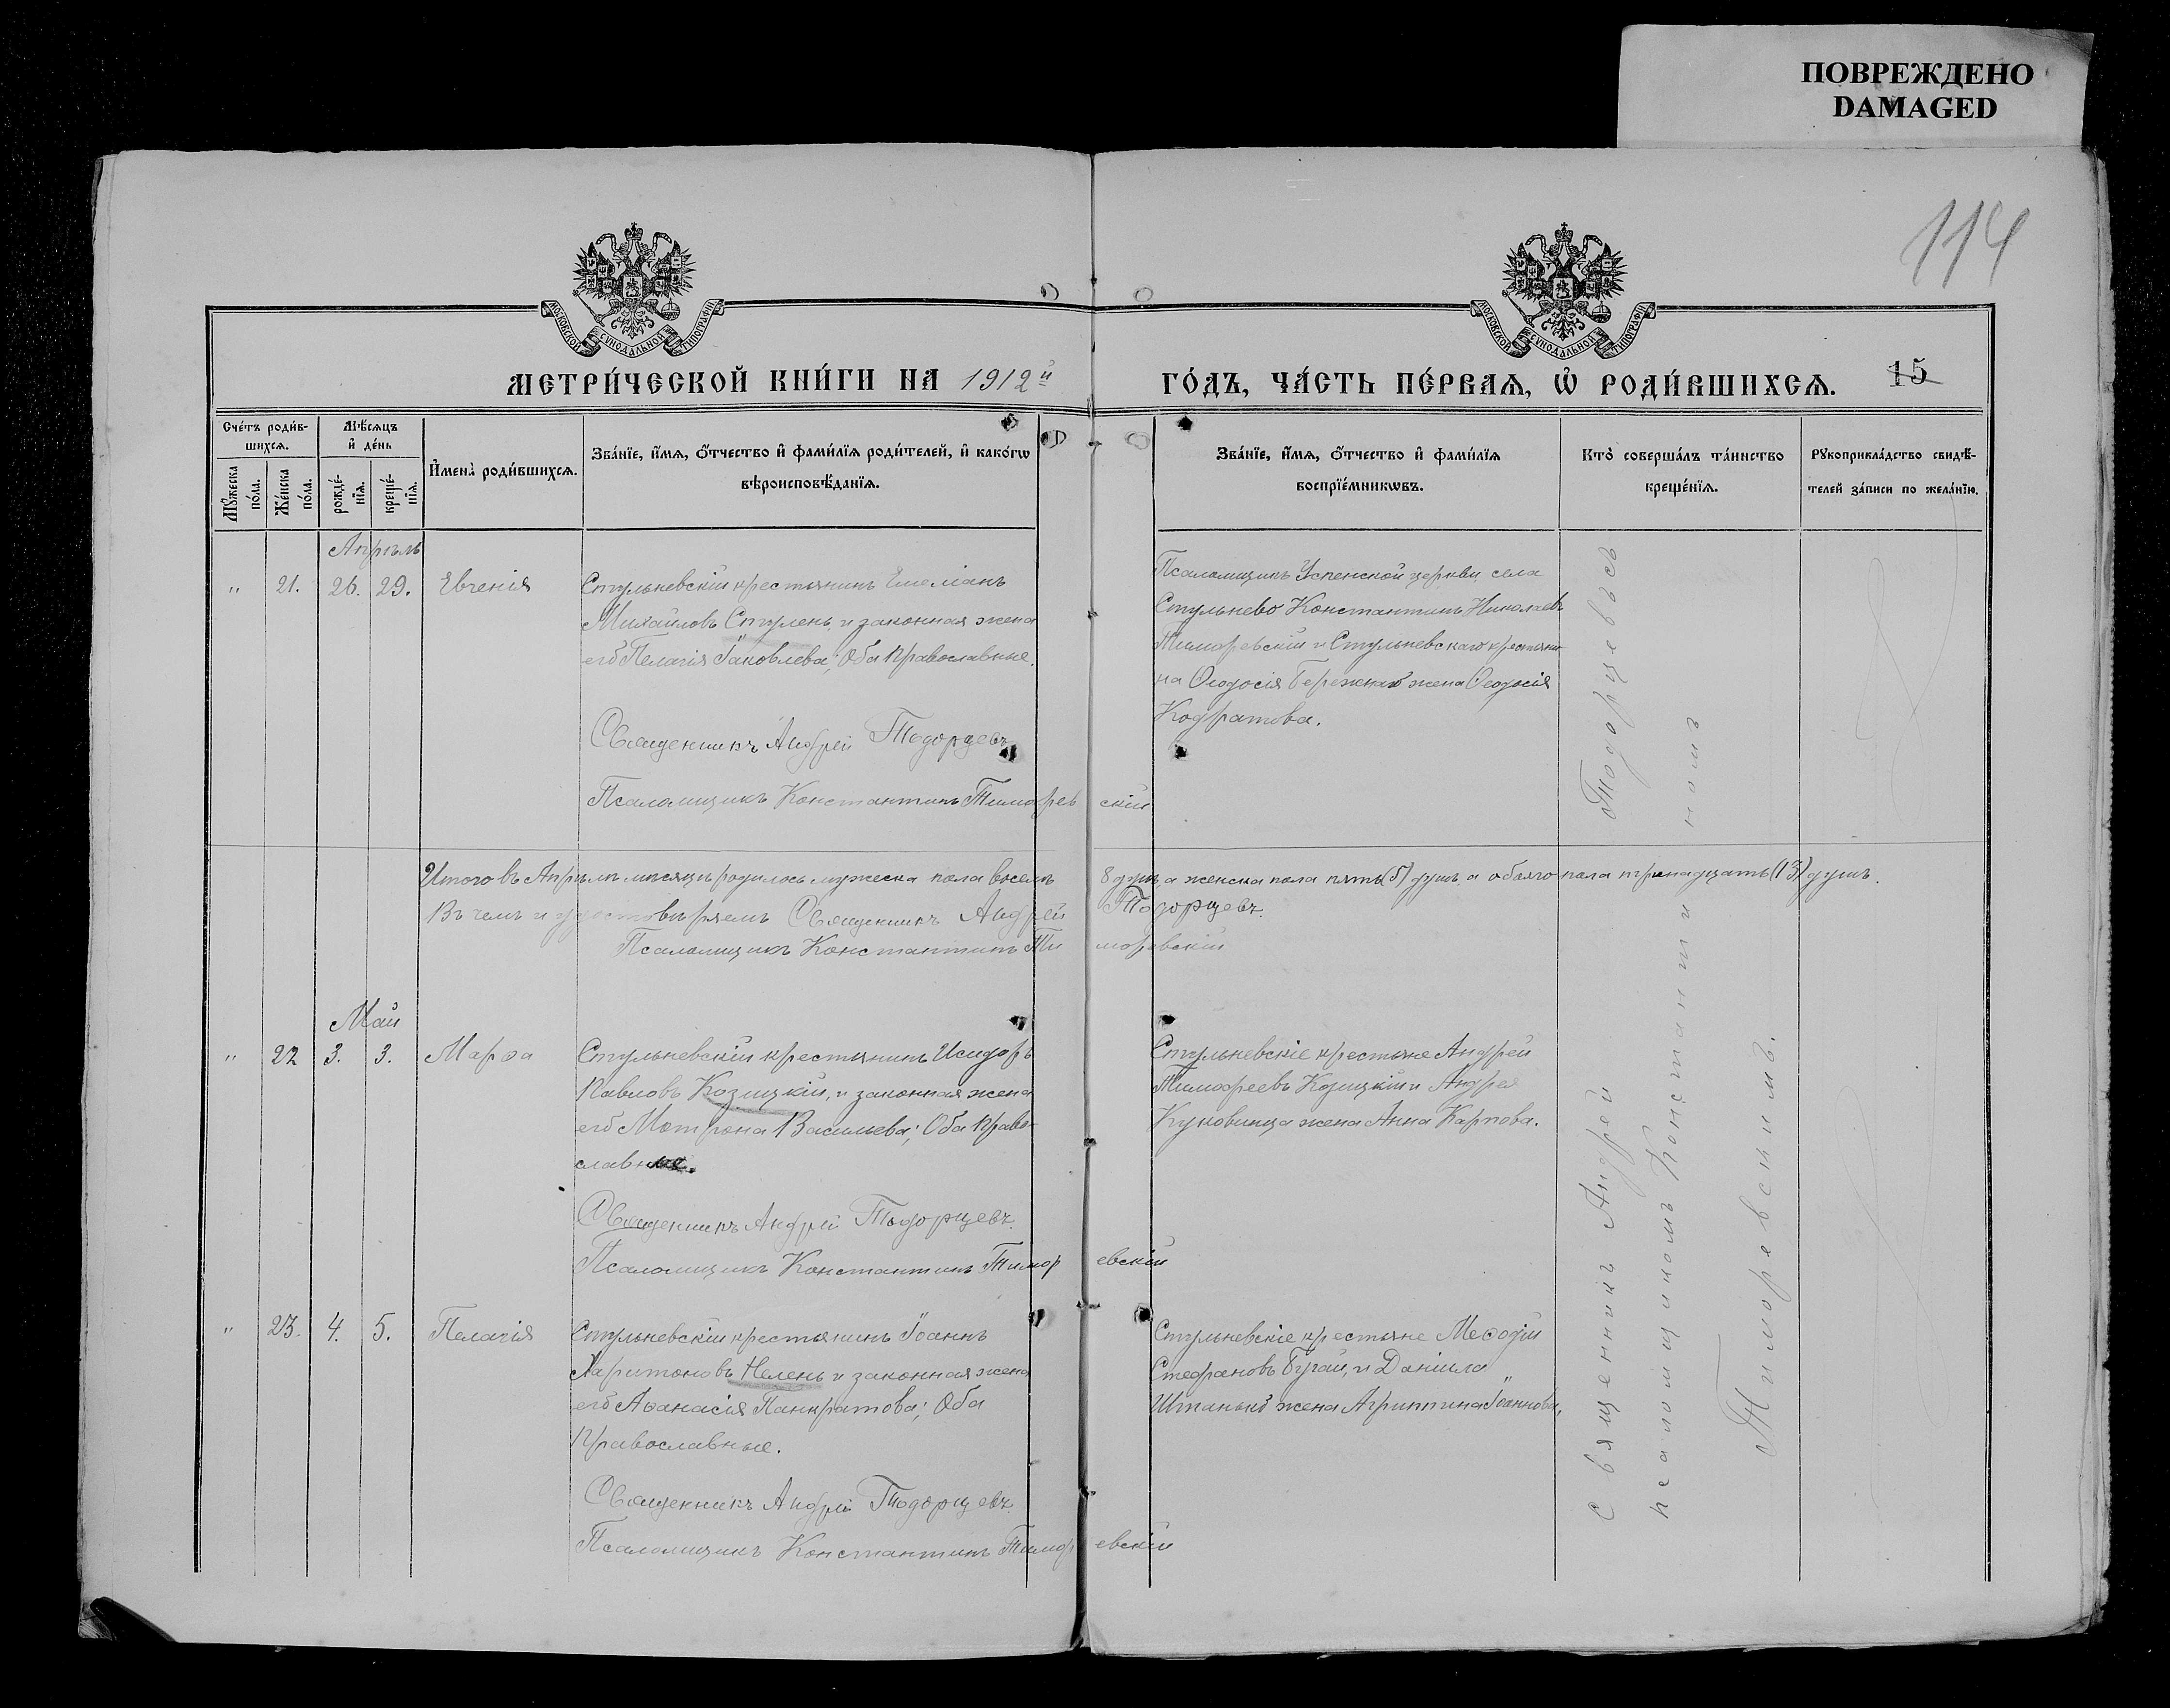 ПОВРЕЖДЕНО
DAMAGED
114
МОСКОВСКОЙ СѴНОДАЛЬНОЙ ТИПОГРАФІИ
МОСКОВСКОЙ СѴНОДАЛЬНОЙ ТИПОГРАФІИ
МЕТРИ́ЧЕСКОЙ КНИ́ГИ НА 1912й ГО́ДЪ, ЧА́СТЬ ПЕ́РВАѦ, Ѡ҆ РОДИ́ВШИХСѦ. 15
Сче́тъ роди́в-
шихсѧ.
Мꙋ́жеска
по́ла.
Же́нска
по́ла.
Мѣ́сѧцъ
и҆ де́нь
рожде́-
нїѧ.
креще́-
нїѧ.
И҆мена̀ роди́вшихсѧ.
Зва́нїе, и҆́мѧ, ѻ҆́тчество и҆ фами́лїѧ роди́телей, и҆ како́гѡ
вѣроисповѣ́данїѧ.
Зва́нїе, и҆́мѧ, ѻ҆́тчество и҆ фами́лїѧ
воспрїе́мникѡвъ.
Кто̀ соверша́лъ та́инство
креще́нїѧ.
Рꙋкоприкла́дство свидѣ́-
телей за́писи по жела́нїю.
Апрѣль
" 21. 26. 29. Евгенія
Стульневскій крестьянинъ Емеліанъ
Михайловъ Стулень, и законная жена
его Пелагія Іаковлева; Оба православные.
Священникъ Андрей Тодорцевъ
Псаломщикъ Константинъ Тиморевскій
Псаломщикъ Успенской церкви села
Стульнево Константинъ Николаевъ
Тиморевскій и Стульневскаго крестьяни-
на Ѳеодосія Бережнаго жена Ѳеодосія
Кодратова.
Итого въ Апрѣлѣ мѣсяцѣ родилось мужеска пола восемь 8 душъ, а женска пола пять (5) душъ, а обоего пола тринадцать (13) душъ.
Въ чемъ и удостовѣряемъ Священникъ Андрей Тодорцевъ.
Псаломщикъ Константинъ Тиморевскій
Май
" 22 3. 3. Марѳа
Стульневскій крестьянинъ Исидоръ
Павловъ Козицкій, и законная жена
его Мотрона Васильева; Оба право-
славные.
Священникъ Андрей Тодорцевъ.
Псаломщикъ Константинъ Тиморевскій
Стульневскіе крестьяне Андрей
Тимофеевъ Козицкій и Андрея
Куковинца жена Анна Карпова.
" 23. 4. 5. Пелагія
Стульневскій крестьянинъ Іоаннъ
Харитоновъ Нелень и законная жена
его Аѳанасія Панкратова; Оба
Православные.
Священникъ Андрей Тодорцевъ.
Псаломщикъ Константинъ Тиморевскій
Стульневскіе крестьяне Меѳодій
Стефановъ Бугай, и Даніила
Штанько жена Агриппина Іоаннова.
Священникъ Андрей Тодорцевъ съ
псаломщикомъ Константиномъ
Тиморевскимъ.